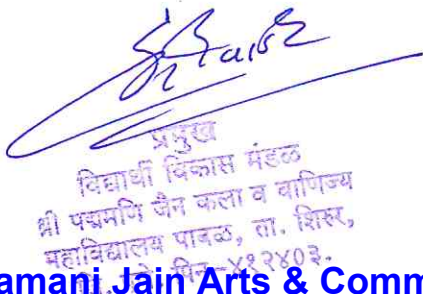 प्रमुख
विद्यार्थी विकास मंडळ
श्री पद्ममणि जैन कला व वाणिज्य
महाविद्यालय पाबळ, ता. शिरुर,
पिन-४१२४०३.
amani Jain Arts & Comm